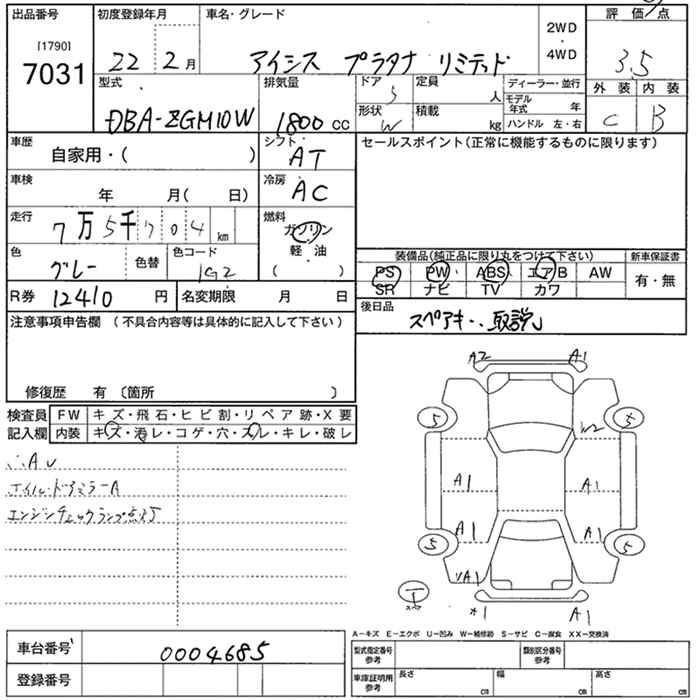 出品番号 初度登録年月 車名・グレード 評価点
[1790]
7031
22 2月
アイシス プラタナ リミテッド
2WD
・
4WD
3.5
型式 排気量 ドア 定員 ディーラー・並行 外装 内装
DBA-ZGM10W 1800cc
5 人
モデル年式 年
形状 積載 ハンドル 左・右
W kg
C B
車歴 シフト セールスポイント(正常に機能するものに限ります)
自家用・( ) AT
車検 冷房
年 月( 日) AC
走行 燃料
7万5千704km ガソリン
・
軽油
( )
色 色替 色コード
グレー 1G2
装備品(純正品に限り丸をつけて下さい) 新車保証書
PS PW ABS エアB AW 有・無
SR ナビ TV カワ
R券 12410円 名変期限 月 日
後日品
スペアキー、取説
注意事項申告欄(不具合内容等は具体的に記入して下さい)
修復歴 有〔箇所 〕
検査員 FW キズ・飛石・ヒビ割・リペア跡・X要
記入欄 内装 キズ・汚レ・コゲ・穴・スレ・キレ・破レ
ホイル・ドアミラーA
エンジンチェックランプ点灯
A2 A1
5 5
W2
A1 A1
A1 A1
5 5
A1
*1 A1
A-キズ E-エクボ U-凹み W-補修跡 S-サビ C-腐食 XX-交換済
車台番号 0004685
型式指定番号参考 類別区分番号参考
登録番号
車庫証明用参考 長さ cm 幅 cm 高さ cm